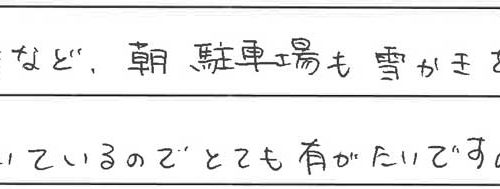 など、朝 駐車場も 雪かき
いているのでとても有がたいです